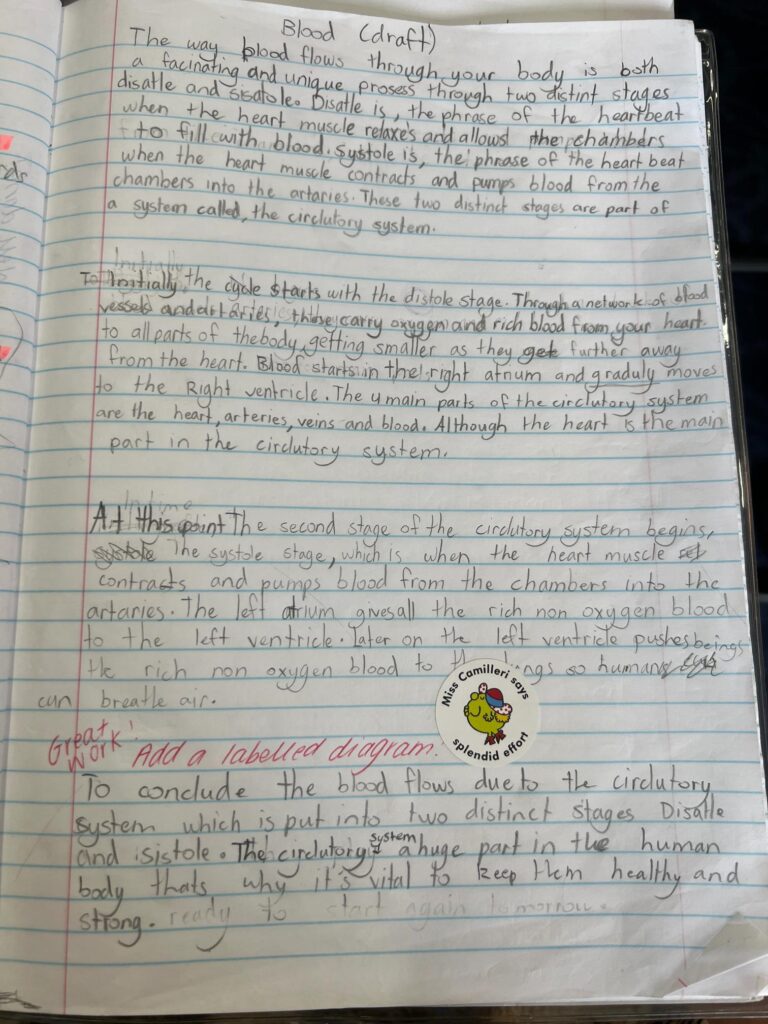 Blood (draft)
The way blood flows through your body is both
a facinating and unique prosess through two distint stages
disatle and sisatole. Disatle is, the phrase of the heartbeat
when the heart muscle relaxes and allows the chambers
to fill with blood. Systole is, the phrase of the heart beat
when the heart muscle contracts and pumps blood from the
chambers into the artaries. These two distinct stages are part of
a system called, the circlutory system.
Initially
To Initially, the cycle starts with the distole stage. Through a network of blood
vessels and artaries, they carry oxygen and rich blood from your heart
to all parts of the body, getting smaller as they get further away
from the heart. Blood starts in the right atrium and graduly moves
to the Right ventricle. The 4 main parts of the circlutory system
are the heart, arteries, veins and blood. Although the heart is the main
part in the circlutory system.
In time
At this point The second stage of the circlutory system begins,
systole The systole stage, which is when the heart muscle
contracts and pumps blood from the chambers into the
artaries. The left atrium gives all the rich non oxygen blood
to the left ventricle. Later on the left ventricle pushes beings
the rich non oxygen blood to the lungs so human
can breathe air.
Miss Camilleri says
splendid effort
Great Work! Add a labelled diagram.
To conclude the blood flows due to the circlutory
system which is put into two distinct stages Disatle
and sisistole. The circlutory system is a huge part in the human
body thats why it's vital to keep them healthy and
strong. ready to start again tomorrow.